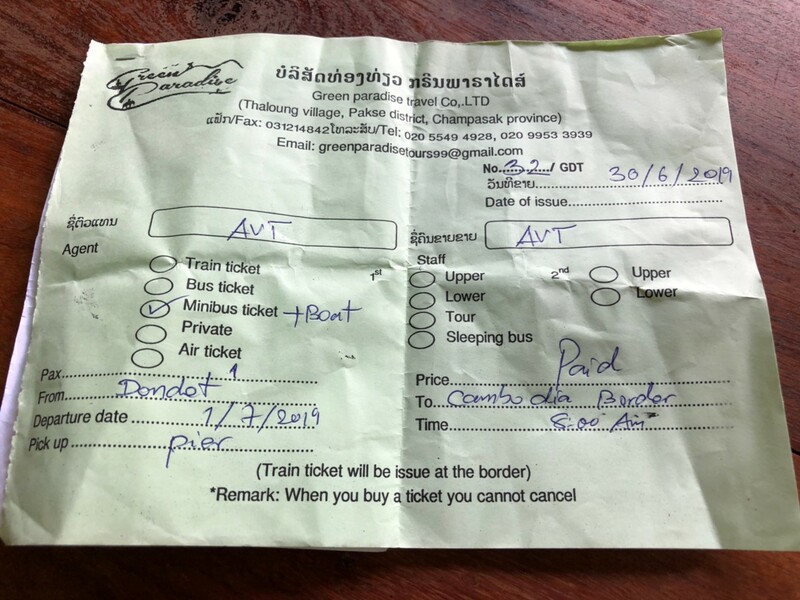 Green Paradise
ບໍລິສັດທ່ອງທ່ຽວ ກຣີນພາຣາໄດສ໌
Green paradise travel Co,.LTD
(Thaloung village, Pakse district, Champasak province)
ແຟັກ/Fax: 031214842ໂທລະສັບ/Tel: 020 5549 4928, 020 9953 3939
Email: greenparadisetours99@gmail.com
No. 32 / GDT
ວັນທີຂາຍ 30/6/2019
Date of issue
ຊື່ຕົວແທນ AVT
Agent
ຊື່ຄົນຂາຍ AVT
Staff
Train ticket
Bus ticket
Minibus ticket + Boat
Private
Air ticket
1st Upper
Lower
Tour
Sleeping bus
2nd Upper
Lower
Pax 1
From Dondet
Departure date 1/7/2019
Pick up pier
Price Paid
To Cambodia Border
Time 8:00 Am
(Train ticket will be issue at the border)
*Remark: When you buy a ticket you cannot cancel